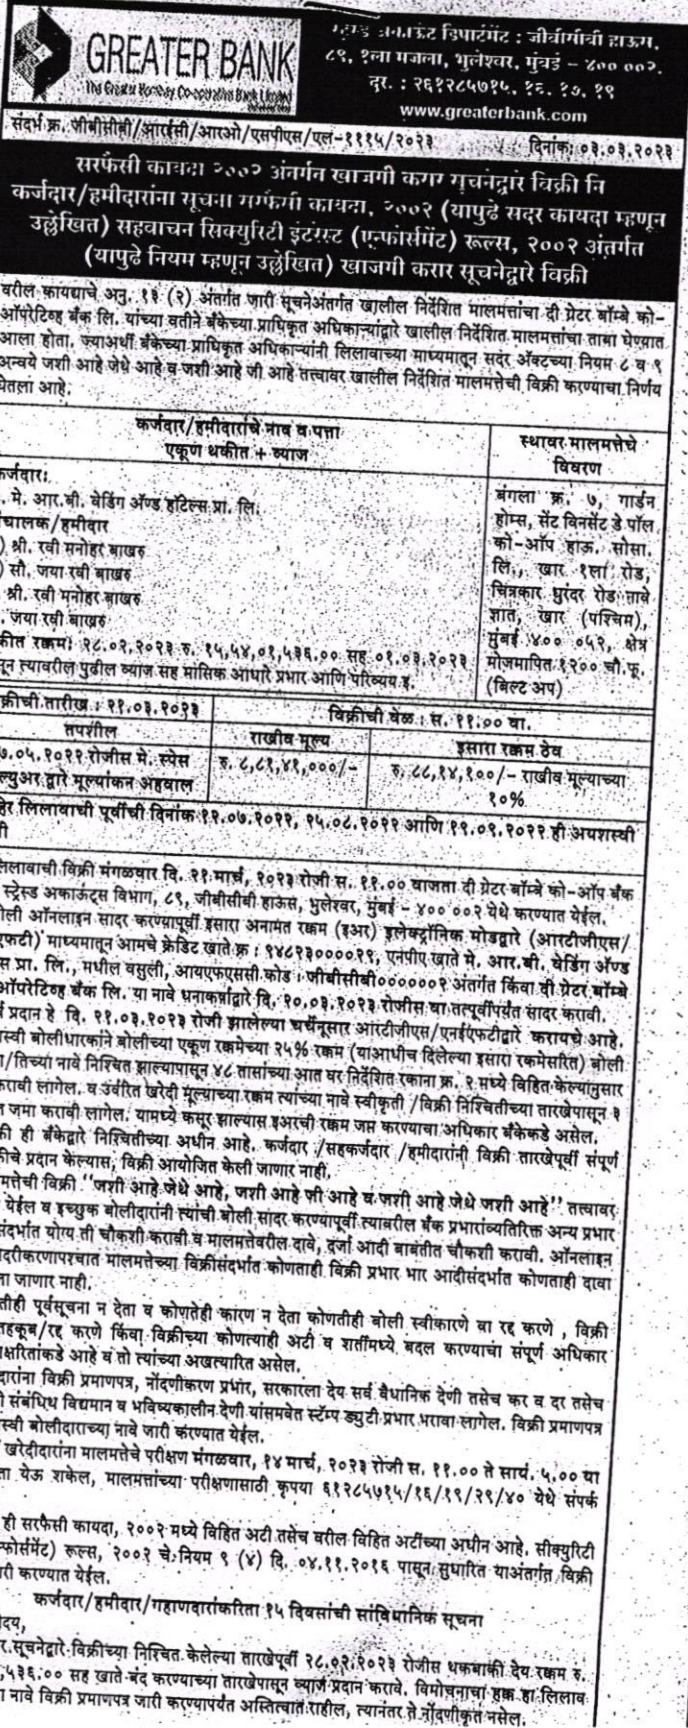 GREATER BANK
The Greater Bombay Co-operative Bank Limited
डिपार्टमेंट : जीबीसीबी हाऊस,
८९, १ला मजला, भुलेश्वर, मुंबई – ४०० ००२.
दूर. : २६१२८५७१५, १६, १७, १९
www.greaterbank.com
संदर्भ क्र. जीबीसीबी/आरईसी/आरओ/एसपीएस/एल-१११५/२०२३ दिनांक: ०३.०३.२०२३
सरफैसी कायदा २००२ अंतर्गत खाजगी करार सूचनेद्वारे विक्री नि
कर्जदार/हमीदारांना सूचना सरफैसी कायदा, २००२ (यापुढे सदर कायदा म्हणून
उल्लेखित) सहवाचन सिक्युरिटी इंटरेस्ट (एन्फोर्समेंट) रूल्स, २००२ अंतर्गत
(यापुढे नियम म्हणून उल्लेखित) खाजगी करार सूचनेद्वारे विक्री
वरील कायद्याचे अनु. १३ (२) अंतर्गत जारी सूचनेअंतर्गत खालील निर्देशित मालमत्तांचा दी ग्रेटर बॉम्बे को-
ऑपरेटिव्ह बँक लि. यांच्या वतीने बँकेच्या प्राधिकृत अधिकाऱ्यांद्वारे खालील निर्देशित मालमत्तांचा ताबा घेण्यात
आला होता. ज्याअर्थी बँकेच्या प्राधिकृत अधिकाऱ्यांनी लिलावाच्या माध्यमातून सदर अ‍ॅक्टच्या नियम ८ व ९
अन्वये जशी आहे जेथे आहे व जशी आहे जी आहे तत्वावर खालील निर्देशित मालमत्तेची विक्री करण्याचा निर्णय
घेतला आहे.
कर्जदार/हमीदारांचे नाव व पत्ता
एकूण थकीत + व्याज
स्थावर मालमत्तेचे
विवरण
कर्जदार:
. मे. आर.बी. वेडिंग अ‍ॅण्ड हॉटेल्स प्रा. लि.
चालक/हमीदार
) श्री. रवी मनोहर बाखरु
) सौ. जया रवी बाखरु
श्री. रवी मनोहर बाखरु
. जया रवी बाखरु
कीत रक्कम: २८.०२.२०२३ रु. १५,५४,०१,५३६.०० सह ०१.०३.२०२३
सून त्यावरील पुढील व्याज सह मासिक आधारे प्रभार आणि परिव्यय इ.
बंगला क्र. ७, गार्डन
होम्स, सेंट विनसेंट डे पॉल
को-ऑप हाऊ. सोसा.
लि., खार १ला रोड,
चित्रकार धुरंदर रोड नावे
ज्ञात, खार (पश्चिम),
मुंबई ४०० ०५२, क्षेत्र
मोजमापित १२०० चौ.फू.
(बिल्ट अप)
क्रीची तारीख : २१.०३.२०२३ विक्रीची वेळ : स. ११:०० वा.
तपशील राखीव मूल्य इसारा रक्कम ठेव
७.०५.२०२२ रोजीस मे. स्पेस
ल्युअर द्वारे मूल्यांकन अहवाल
रु. ८,८१,४१,०००/-
रु. ८८,१४,१००/- राखीव मूल्याच्या
१०%
हिर लिलावाची पूर्वीची दिनांक १२.०७.२०२२, २५.०८.२०२२ आणि १९.०९.२०२२ ही अयशस्वी
ी
लिलावाची विक्री मंगळवार दि. २१ मार्च, २०२३ रोजी स. ११.०० वाजता दी ग्रेटर बॉम्बे को-ऑप बँक
स्ट्रेस्ड अकाऊंट्स विभाग, ८९, जीबीसीबी हाऊस, भुलेश्वर, मुंबई – ४०० ००२ येथे करण्यात येईल.
ोली ऑनलाइन सादर करण्यापूर्वी इसारा अनामत रक्कम (इअर) इलेक्ट्रॉनिक मोडद्वारे (आरटीजीएस/
एफटी) माध्यमातून आमचे क्रेडिट खाते क्र : ९४८२३००००२९, एनपीए खाते मे. आर.बी. वेडिंग अ‍ॅण्ड
स प्रा. लि., मधील वसुली, आयएफएससी कोड : जीबीसीबी००००००२ अंतर्गत किंवा दी ग्रेटर बॉम्बे
ऑपरेटिव्ह बँक लि. या नावे धनाकर्षाद्वारे दि. २०.०३.२०२३ रोजीस वा तत्पूर्वीपर्यंत सादर करावी.
प्रदान हे दि. २१.०३.२०२३ रोजी झालेल्या चर्चेनूसार आरटीजीएस/एनईएफटीद्वारे करायचे आहे.
स्वी बोलीधारकाने बोलीच्या एकूण रक्कमेच्या २५% रक्कम (याआधीच दिलेल्या इसारा रकमेसरित) बोली
ा/तिच्या नावे निश्चित झाल्यापासून ४८ तासांच्या आत वर निर्देशित रकाना क्र. २ मध्ये विहित केल्यानुसार
करावी लागेल. व उर्वरित खरेदी मूल्याच्या रक्कम त्यांच्या नावे स्वीकृती /विक्री निश्चितीच्या तारखेपासून ३
त जमा करावी लागेल. यामध्ये कसूर झाल्यास इअरची रक्कम जप्त करण्याचा अधिकार बँकेकडे असेल.
क्री ही बँकेद्वारे निश्चितीच्या अधीन आहे. कर्जदार /सहकर्जदार /हमीदारांनी विक्री तारखेपूर्वी संपूर्ण
ीचे प्रदान केल्यास, विक्री आयोजित केली जाणार नाही.
मत्तेची विक्री "जशी आहे जेथे आहे, जशी आहे जी आहे व जशी आहे जेथे जशी आहे" तत्त्वावर
येईल व इच्छुक बोलीदारांनी त्यांची बोली सादर करण्यापूर्वी त्यावरील बँक प्रभारांव्यतिरिक्त अन्य प्रभार
संदर्भात योग्य ती चौकशी करावी व मालमत्तेवरील दावे, दर्जा आदी बाबतीत चौकशी करावी. ऑनलाइन
दरीकरणापश्चात मालमत्तेच्या विक्रीसंदर्भात कोणताही विक्री प्रभार भार आदीसंदर्भात कोणताही दावा
ता जाणार नाही.
तीही पूर्वसूचना न देता व कोणतेही कारण न देता कोणतीही बोली स्वीकारणे वा रद्द करणे , विक्री
तहकूब/रद्द करणे किंवा विक्रीच्या कोणत्याही अटी व शर्तींमध्ये बदल करण्याचा संपूर्ण अधिकार
क्षरितांकडे आहे व तो त्यांच्या अखत्यारित असेल.
दारांना विक्री प्रमाणपत्र, नोंदणीकरण प्रभार, सरकारला देय सर्व वैधानिक देणी तसेच कर व दर तसेच
ी संबंधिथ विद्यमान व भविष्यकालीन देणी यांसमवेत स्टॅम्प ड्युटी प्रभार भरावा लागेल. विक्री प्रमाणपत्र
स्वी बोलीदाराच्या नावे जारी करण्यात येईल.
खरेदीदारांना मालमत्तेचे परीक्षण मंगळवार, १४ मार्च, २०२३ रोजी स. ११.०० ते सायं. ५.०० या
ता येऊ शकेल, मालमत्तांच्या परीक्षणासाठी कृपया ६१२८५७१५/१६/१९/२९/४० येथे संपर्क
ही सरफैसी कायदा, २००२ मध्ये विहित अटी तसेच वरील विहित अटींच्या अधीन आहे. सीक्युरिटी
न्फोर्समेंट) रूल्स, २००२ चे नियम ९ (४) दि. ०४.११.२०१६ पासून सुधारित याअंतर्गत विक्री
ारी करण्यात येईल.
कर्जदार/हमीदार/गहाणदारांकरिता १५ दिवसांची सांविधानिक सूचना
दय,
र सूचनेद्वारे विक्रीच्या निश्चित केलेल्या तारखेपूर्वी २८.०२.२०२३ रोजीस थकबाकी देय रक्कम रु.
,५३६.०० सह खाते बंद करण्याच्या तारखेपासून व्याज प्रदान करावे. विमोचनाचा हक्क हा लिलाव
ा नावे विक्री प्रमाणपत्र जारी करण्यापर्यंत अस्तित्वात राहील, त्यानंतर ते नोंदणीकृत नसेल.